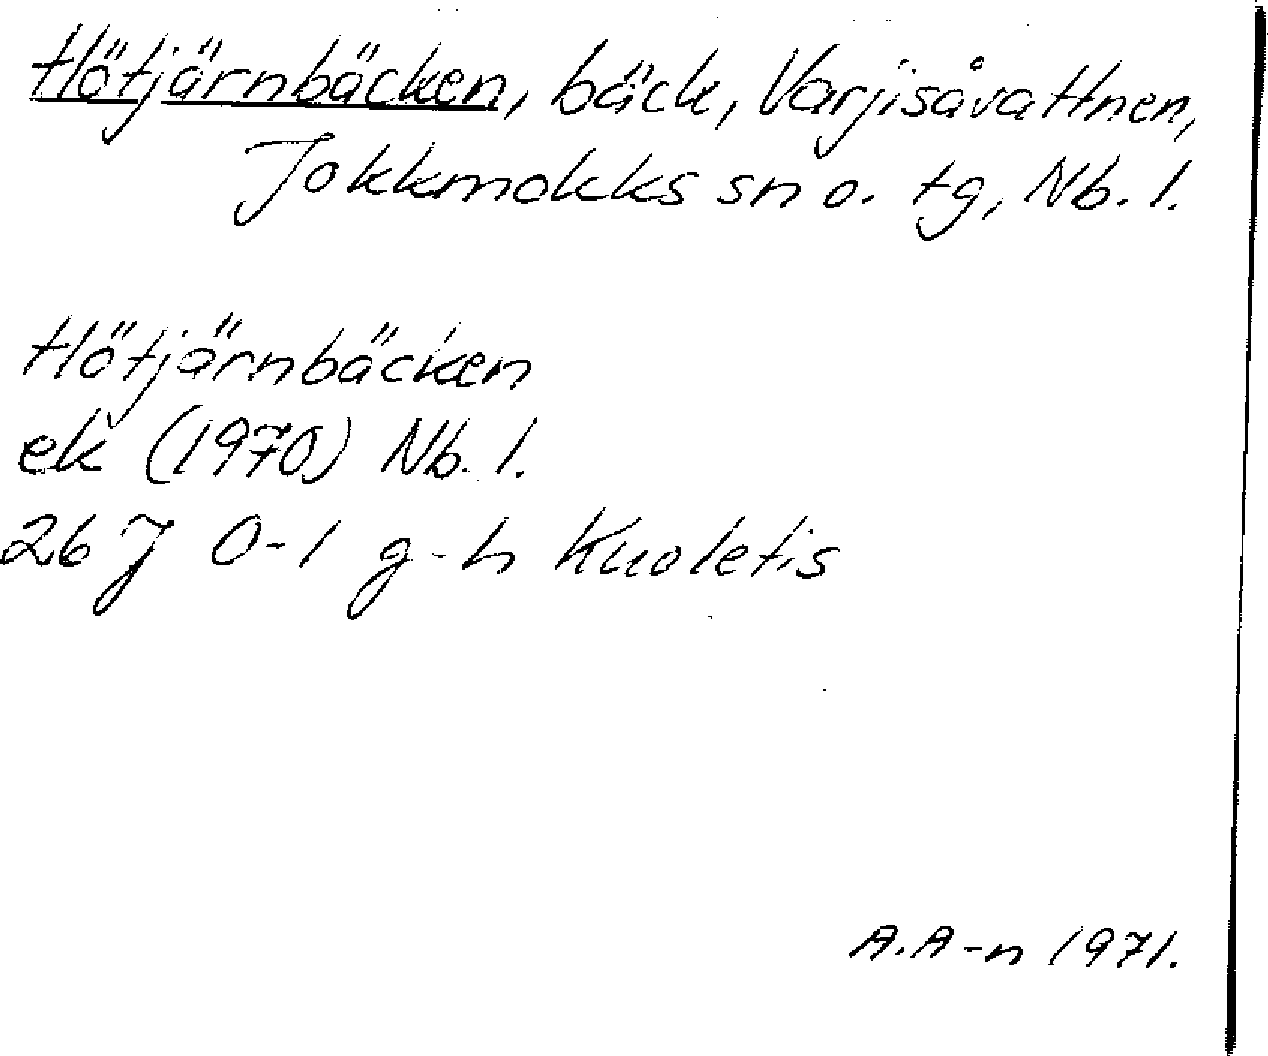 Hötjärnbäcken, bäck, Varjisåvattnen,
Jokkmokks sn o. tg, Nb. l.
Hötjärnbäcken
ek (1970) Nb. l.
26 J 0-1 g-h Kuoletis
A.A-n 1971.